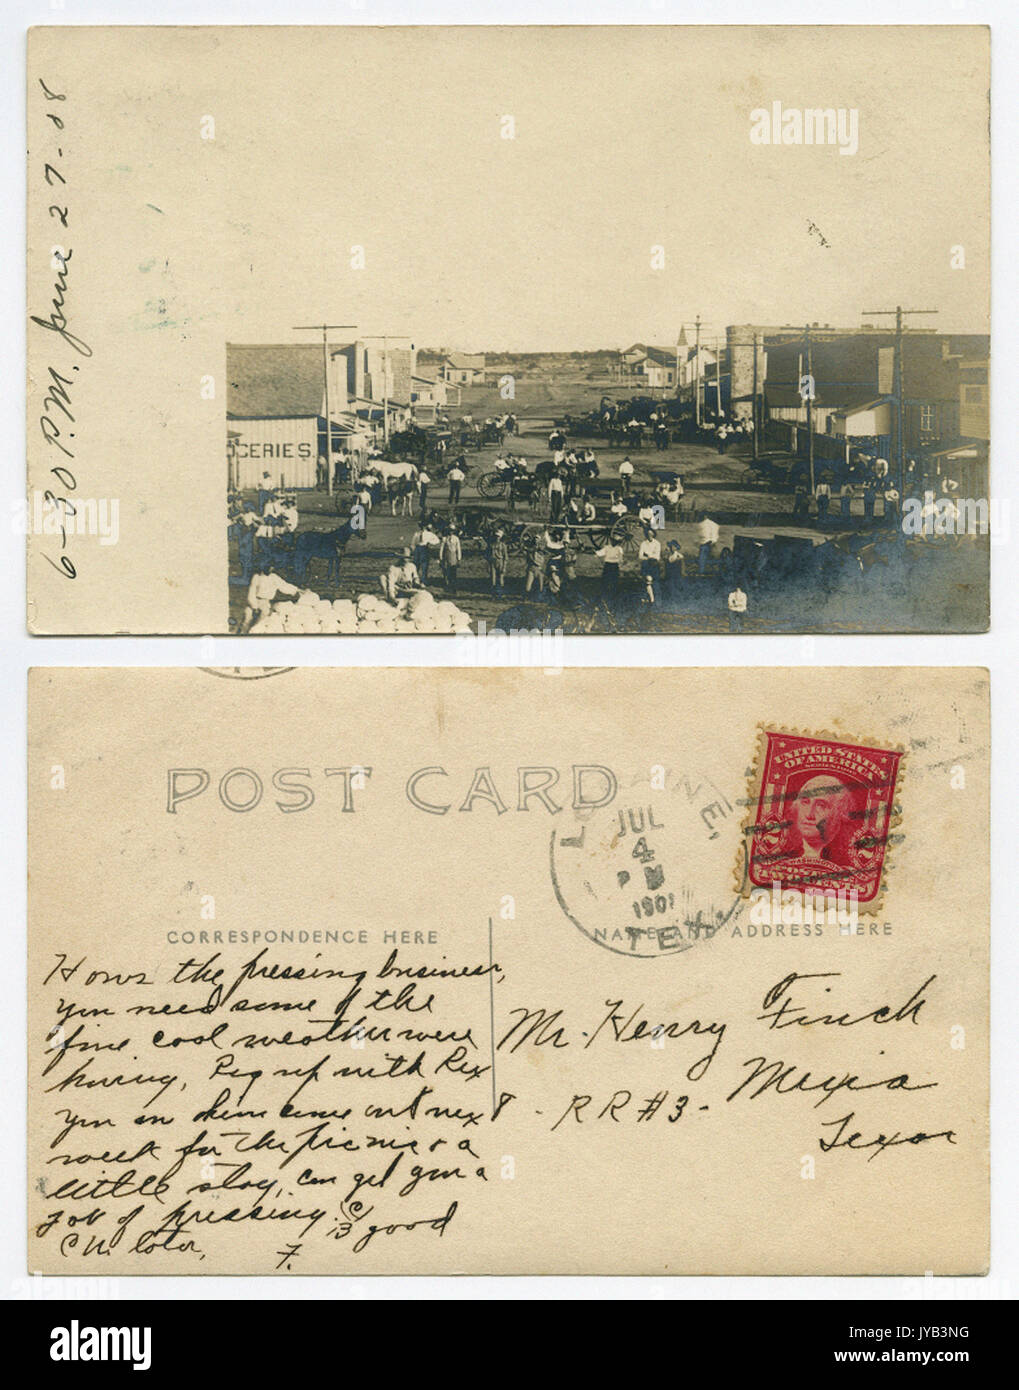 6-30 P.M. June 27-08
CERIES.
POST CARD
L NE,
JUL
4
P M
1901
TEX.
UNITED STATES
OF AMERICA
2 2
WASHINGTON
TWO CENTS
CORRESPONDENCE HERE
NAME AND ADDRESS HERE
Hows the pressing business,
you need some of the
fine cool weather were
having, Rig up with Rex
you an him come out next
week for the picnic & a
little stay, can get you a
job of pressing.
good
C U. later, F.
Mr. Henry Finch
Mexia
RR#3-
Texas
a alamy
alamy
JYB3NG
www.alamy.com